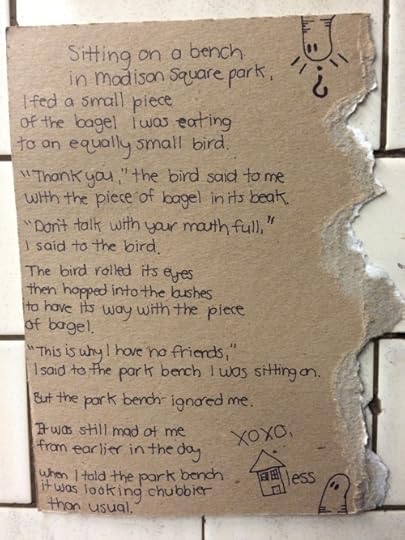 Sitting on a bench
in Madison Square park,
I fed a small piece
of the bagel I was eating
to an equally small bird.
"Thank you," the bird said to me
with the piece of bagel in its beak.
"Don't talk with your mouth full,"
I said to the bird.
The bird rolled its eyes
then hopped into the bushes
to have its way with the piece
of bagel.
"This is why I have no friends,"
I said to the park bench I was sitting on.
But the park bench ignored me.
It was still mad at me
from earlier in the day
when I told the park bench
it was looking chubbier
than usual.
XOXO,
less
?